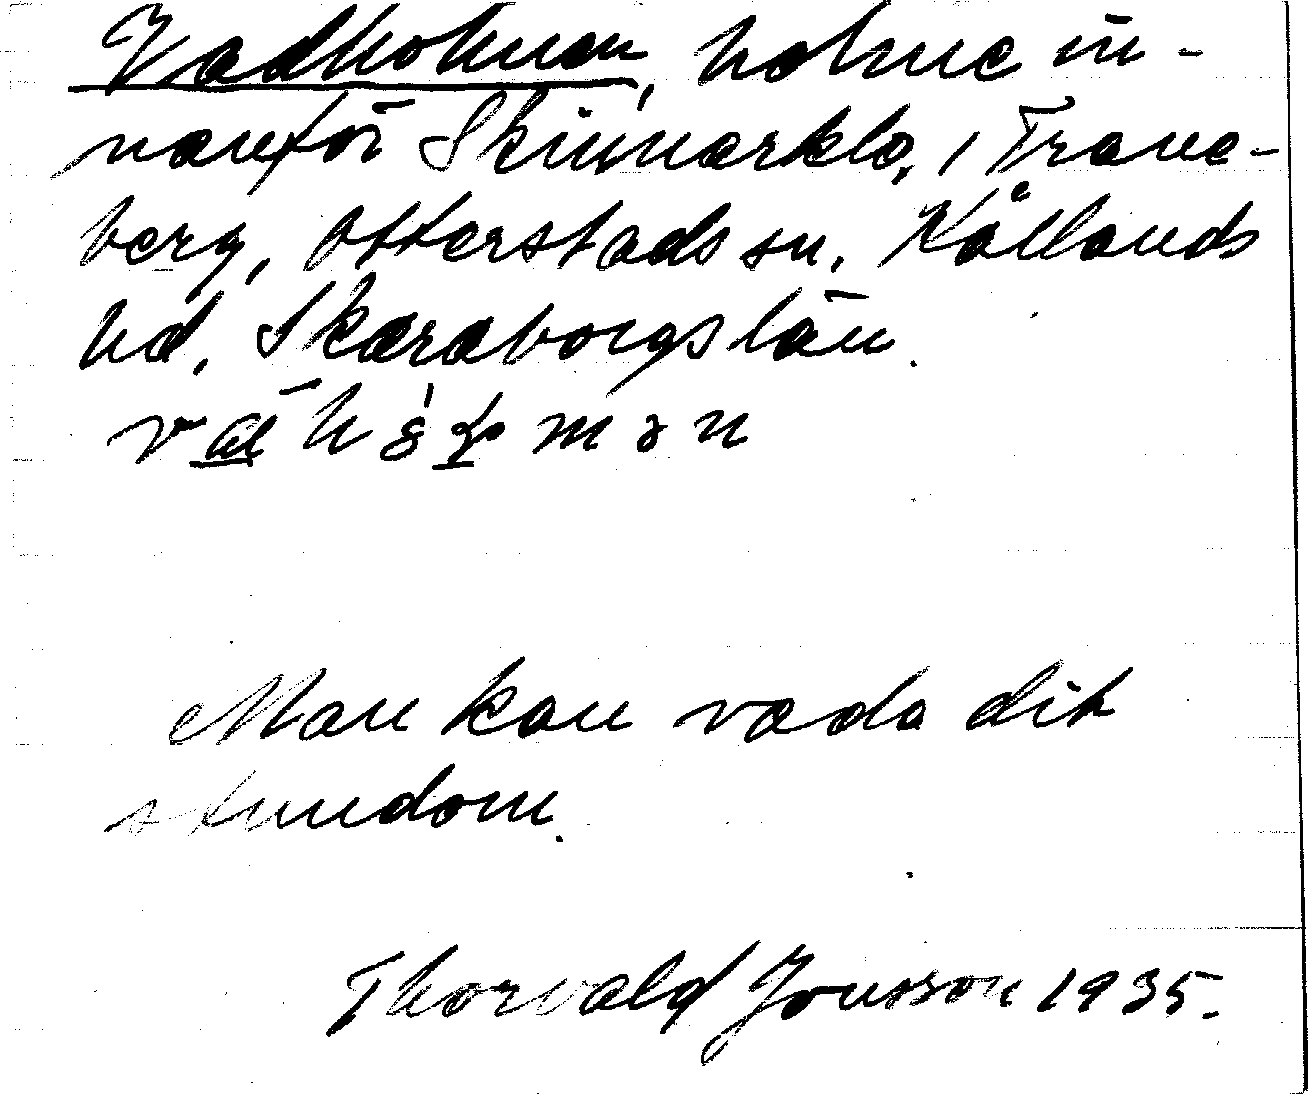 Vadholmen, holme in-
nanför Skinnarklo, i Trane-
berg, Otterstads sn. Kållands
hd. Skaraborgs län.
Man kan vada dit
stundom.
Thorvald Jonsson 1935.